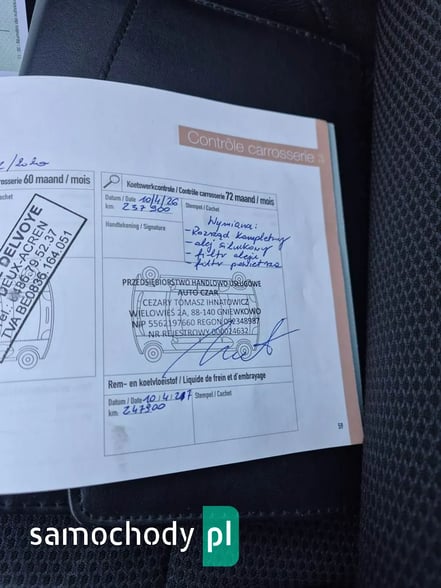 Contrôle carrosserie
2/2020
rosserie 60 maand / mois
Koetswerkcontrole / Contrôle carrosserie 72 maand / mois
Datum / Date 10/4/26
km: 237 900
Stempel / Cachet
Handtekening / Signature
Wymiana:
- Rozrząd kompletny
- olej silnikowy
- filtr oleju
- filtr powietrza
DELVOYE
-ACREN
TVA BE0836.164.051
PRZEDSIĘBIORSTWO HANDLOWO USŁUGOWE
AUTO CZAR
CEZARY TOMASZ IHNATOWICZ
WIELOWIEŚ 2A, 88-140 GNIEWKOWO
NIP 5562197660 REGON 092348987
NR REJESTROWY 000014632
Rem- en koelvloeistof / Liquide de frein et d'embrayage
Datum / Date 10/4/27
Stempel / Cachet
km: 247900
59
samochody pl